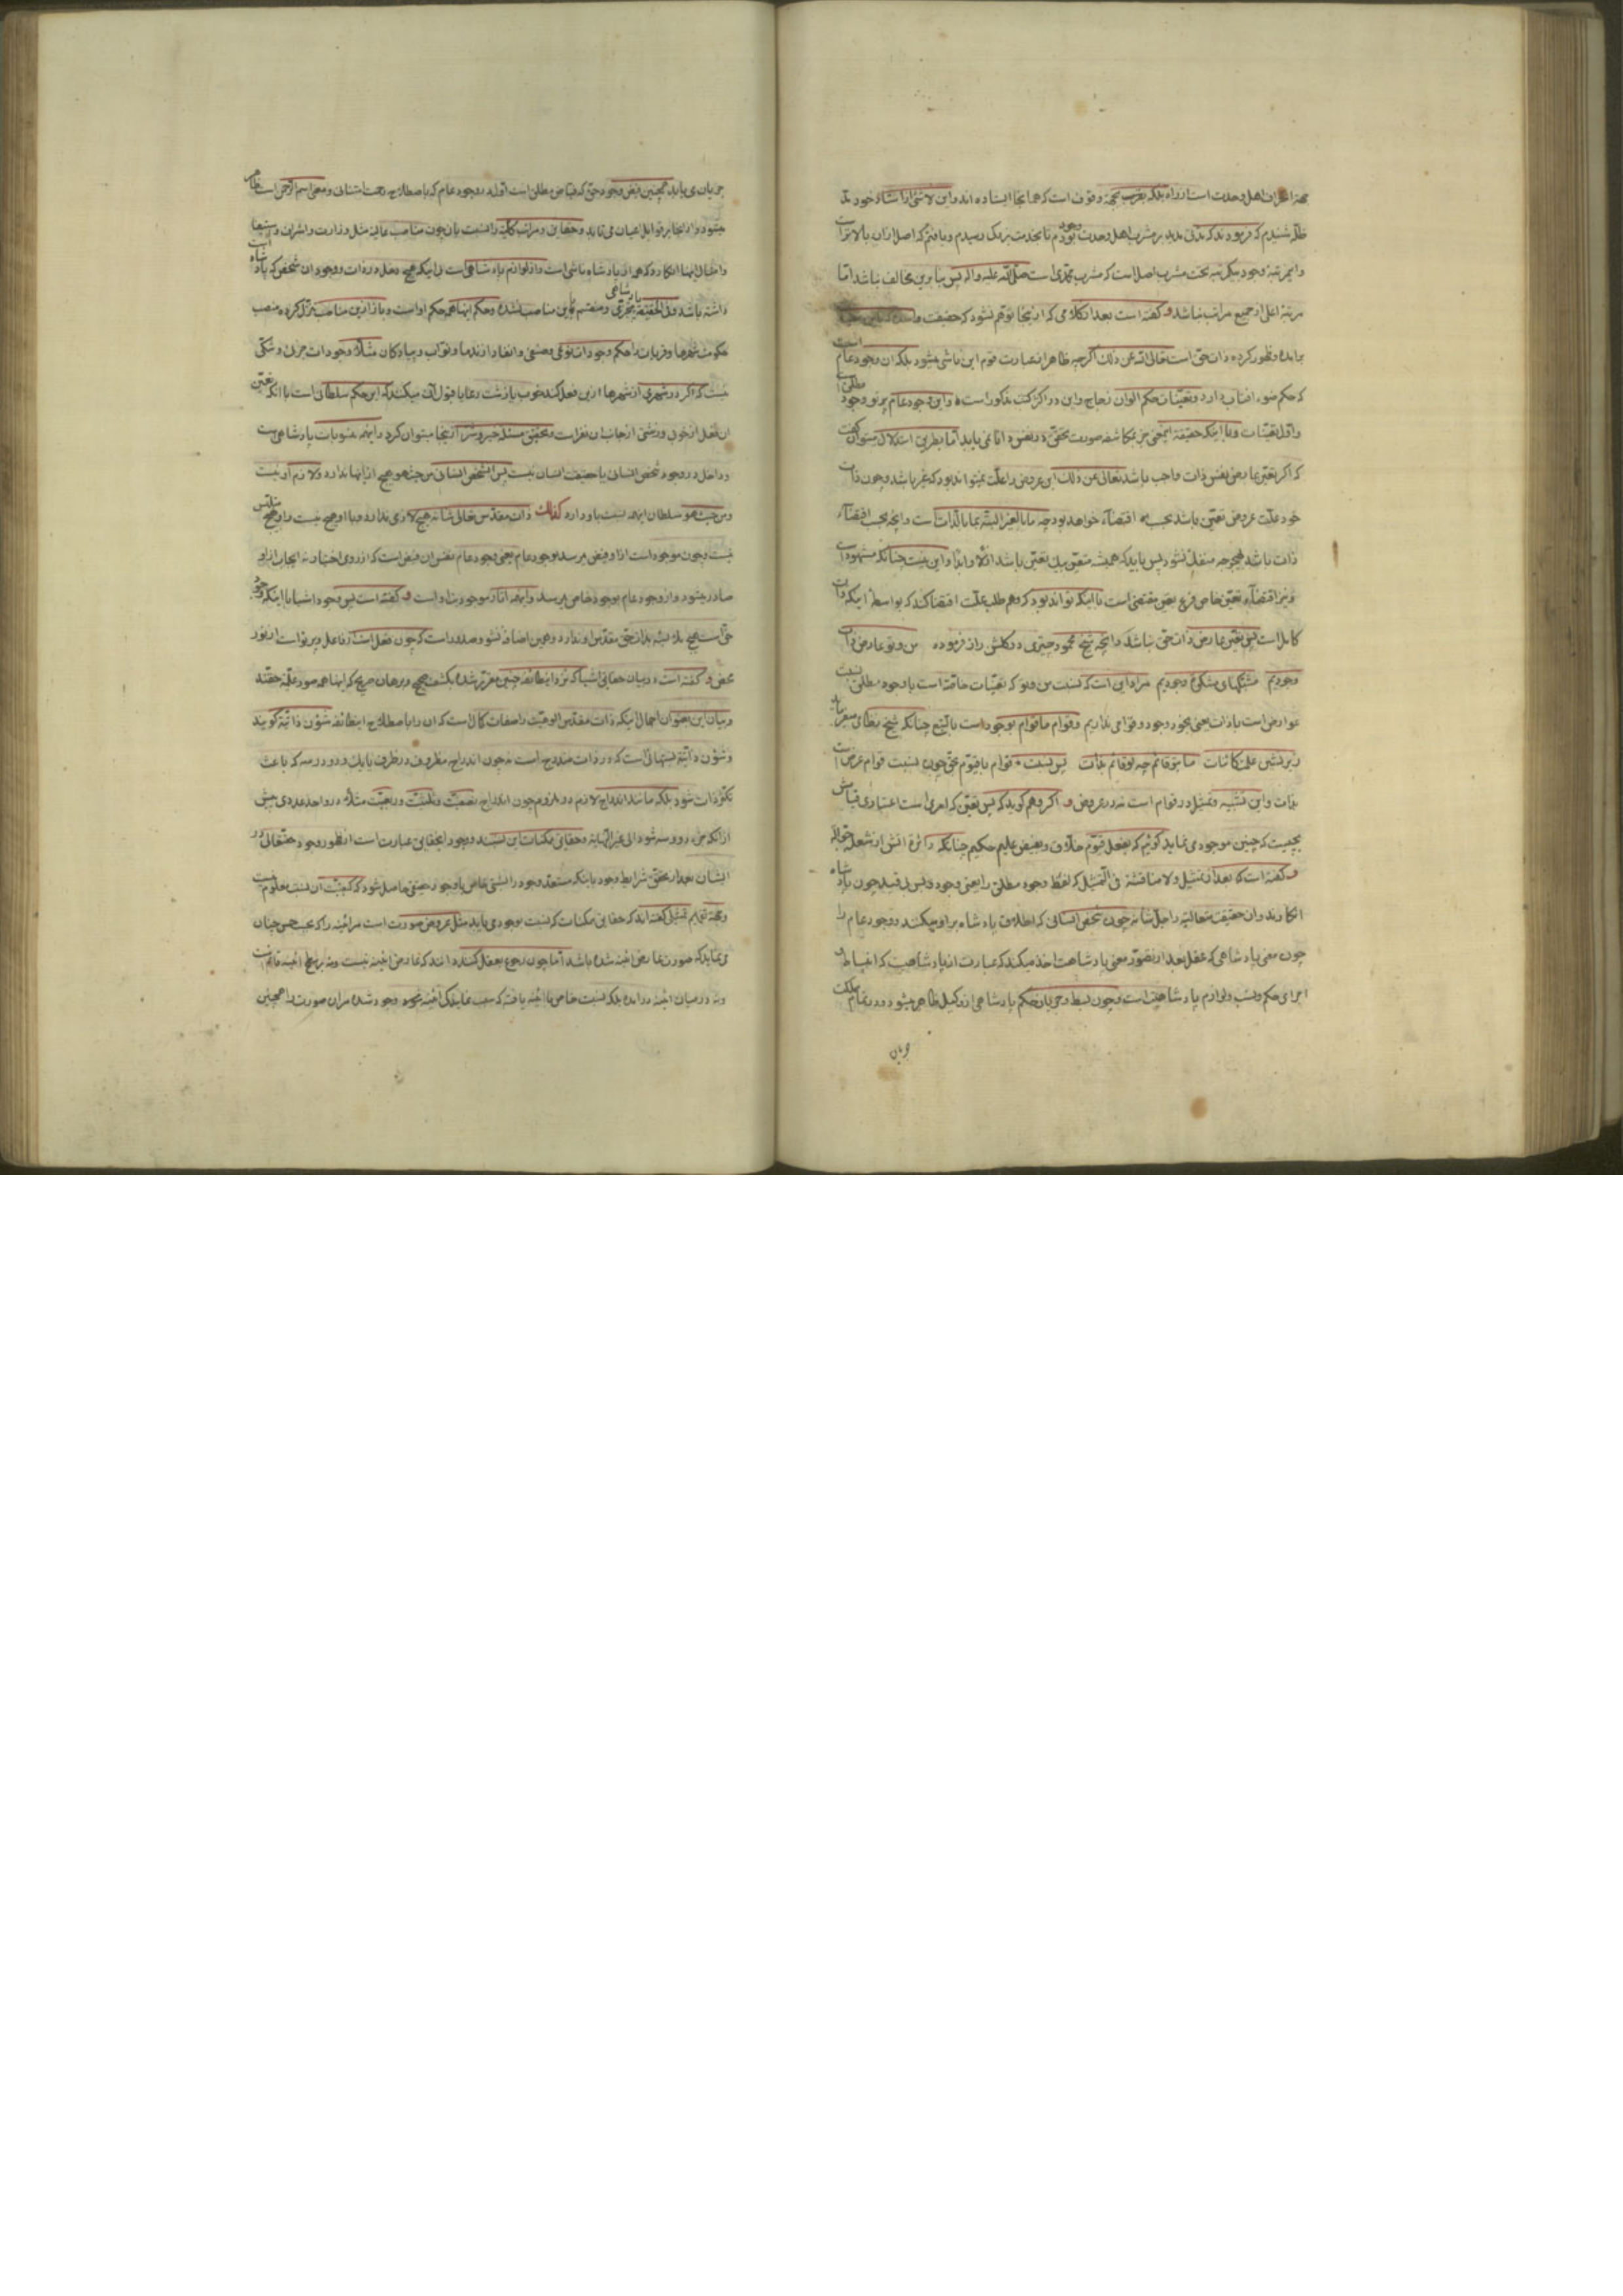 اهل وحدت است از راه بلکه بقرب بجهة وقوف است که همانجا ایستاده اند و این لا شئ از انشاء خود
شنیدم که فرمودند که مدتی مدید بر مشرب اهل وحدت بودم تا بخدمت بزرگ رسیدم و یافتم که اصل ازان بالاتر است
مشرب اصل است که مشرب محمدی است صلی الله علیه واله پس بنابرین مخالف نباشد اما
مرتبهٔ اعلی از جمیع مراتب نباشد و گفته است بعد از کلامی که از اینجا توهم نشود که حقیقت واحده
برامده و ظهور کرده ذات حق است تعالی الله عن ذلک اگرچه ظاهر از عبارت قوم این ناشی میشود بلکه ان وجود عام است
که حکم ضوء افتاب دارد و تعینات حکم الوان زجاج و این در اکثر کتب مذکور است و این وجود عام پرتو وجود مطلق است
و اول تعینات و با اینکه حقیقة این معنی جز بمکاشفه صورت تحقق در نفس دانا نمی یابد اما بطریق استدلال میتوان گفت
که اگر تعین عارض نفس ذات واجب باشد تعالی عن ذلک این عروض را علت نمیتواند بود که غیر باشد و چون ذات
خود علت عروض تعین باشد بحسب اقتضاء خواهد بود چه ما بالغیر البته بما بالذات است و انچه بحسب اقتضاء
ذات باشد بهیچ وجه منفک نشود پس باید که همیشه متعین بیک تعین باشد ازلا و ابدا و این نیست چنانکه مشهود است
و نیز اقتضاء تعین خاص فرع بعض مقتضی است با اینکه تواند بود که وهم طلب علت اقتضا کند که بواسطه اینکه ذات
کامل است پس تعین عارض ذات حق نباشد و انچه شیخ محمود جبتری در گلشن راز فرموده من و تو عارض ذات
وجودیم مشبکهای مشکوة وجودیم مراد این است که نسبت من و تو که تعینات خاصه است با وجود مطلق نسبت
عوارض است با ذات یعنی بخود وجود و قوامی نداریم و قوام ما قوام بوجود است بالتبع چنانکه شیخ نظامی
زیر نشین علمت کائنات ما بتو قائم چو تو قائم بذات پس نسبت قوام با قیوم حق چون نسبت قوام عرض است
بذات و این تشبیه و تمثیل در قوام است نه در عروض و اگر وهم گوید که پس تعین که امری است اعتباری
بچیست که چنین موجود می نماید گوئیم که بفعل قیوم خلاق و بفیض علیم حکیم چنانکه دائرهٔ اتش از شعله جواله
و گفته است که بعد از تمثیل و لا مناقشة فی التمثیل که لفظ وجود مطلق را یعنی وجود و بس از قبیل چون پادشاه
انگارند و ان حقیقت متعالیه را جل شانه چون شخص انسانی که اطلاق پادشاه بر او میکنند و وجود عام را
چون معنی پادشاهی که عقل بعد از تصور معنی پادشاهت اخذ میکند که عبارت از پادشاهیت که انبساط و
اجرای حکم و نسب و لوازم پادشاهیت است و چون بسط و جریان حکم پادشاهی از وکیل ظاهر میشود و در تمام مملکت
جریان
جریان می یابد همچنین فیض وجود حق که فیاض مطلق است اولا بوجود عام که باصطلاح رحمت امتنانی و معنی اسم الرحمن است ظاهر
میشود و از انجا بر قوابل اعیان می تابد و حقایق و مراتب کلیه را نسبت بان چون مناصب عالیه مثل وزارت و اشراف
و امثال اینها انگارد که همه از پادشاه ناشی است و از لوازم پادشاهی است با اینکه هیچ دخل در ذات و وجود ان شخص که پادشاه است
داشته باشد و فی الحقیقة پادشاهی متجزی و منقسم باین مناصب نشده و حکم اینها همه حکم اوست و باز ازین مناصب تنزل کرده منصب
حکومت شهرها و قریات را حکم وجودات نوعی و صنفی و انفار از ندما و نواب و پیادگان مثلا وجودات جزئی و شکی
نیست که اگر در شهری از شهرها از این فعل کند خوب یا زشت رعایا قبول آن میکند که این حکم سلطان است با انکه تعین
ان فعل از خوبی و زشتی از جانب ان نفر است و تحقیق مسئلهٔ خیر و شر از اینجا میتوان کرد و اینهمه منسوبات پادشاهی است
و داخل در وجود شخص انسانی یا حقیقت انسان نیست پس الشخص الانسانی من حیث هو هیچ از اینها ندارد و لازم او نیست
و من حیث هو سلطان اینهمه نسبت باو دارد کذلک ذات مقدس تعالی شانه هیچ لازمی ندارد و با او هیچ نیست و او هیچ
نیست و چون موجود است از او فیض میرسد بوجود عام یعنی وجود عام نفس ان فیض است که از روی اختیار نه ایجاب از او
صادر میشود و از وجود عام بوجود خاص میرسد و اینهمه اثار موجودیت اوست و گفته است پس وجود اشیا با اینکه وجود
حق است هیچ ملابسه بذات حق مقدس او ندارد و همین اضافه نشو و صدور است که چون فعل است از فاعل و پرتو است از نور
محض و گفته است در بیان حقایق اشیا که نزد اینطائفه چنین مقرر شده بکشف صحیح و برهان صریح که اینها همه صور علمیة حقند
و بیان این بعنوان اجمال اینکه ذات مقدس الوهیت را صفات کمال است که ان را باصطلاح اینطائفه شؤن ذاتیة گویند
و شؤن ذاتیة نسبتهائی است که در ذات مندرج است نه چون اندراج مظروف در ظرف یا یک و دو در سه که باعث
تکثر ذات شود بلکه مانند اندراج لازم در ملزوم چون اندراج نصفیت و ثلثیت و ربعیت مثلا در واحد عددی پیش
از انکه جزء دو و سه شود الی غیر النهایة و حقایق ممکنات این نسبند و وجود این حقایق عبارت است از ظهور وجود حقتعالی در
ایشان بعد از تحقق شرایط وجود یا اینکه مستعد وجود را نسبتی خاص با وجود حقیقی حاصل شود که کیفیت ان نسبت معلوم نیست
و بجهة تفهیم تمثیل گفته اند که حقایق ممکنات که نسبت بوجود می یابد مثل عروض صورت است مر ائینه را که بحسب حس چنان
می نماید که صورت عارض ائینه شده باشد اما چون رجوع بعقل کنند دانند که عارض ائینه نیست و نه بر سطح ائینه قائم است
و نه در میان ائینه درامده بلکه نسبت خاص با ائینه یافته که سبب نمایندگی ائینه وجود شده مر ان صورت را همچنین